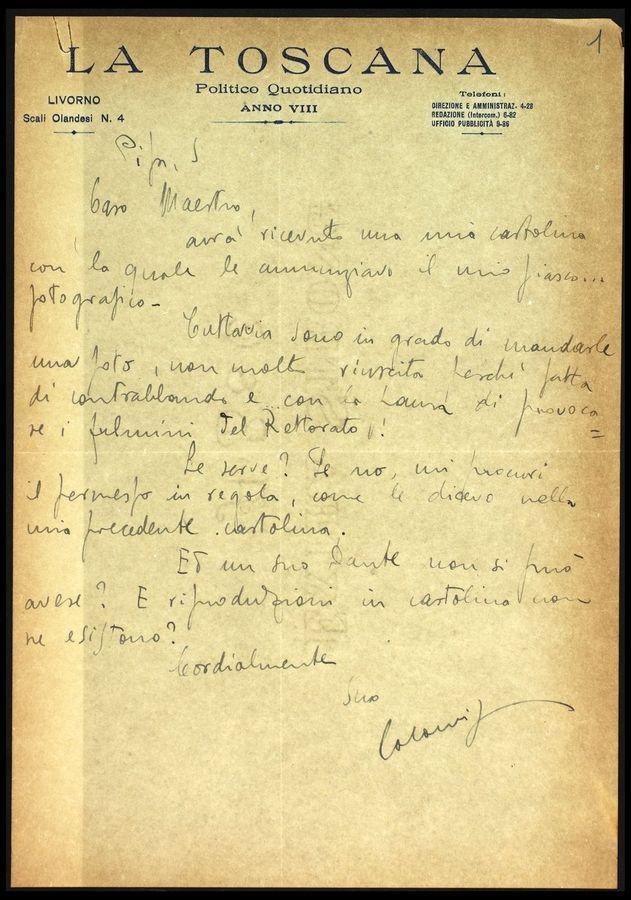 1
LA TOSCANA
Politico Quotidiano
ANNO VIII
LIVORNO
Scali Olandesi N. 4
Telefoni:
DIREZIONE E AMMINISTRAZ. 4-28
REDAZIONE (Intercom.) 6-82
UFFICIO PUBBLICITÀ 9-86
Pisa, 5
Caro Maestro,
avrà ricevuto una mia cartolina
con la quale le annunziavo il mio fiasco...
fotografico -
Tuttavia sono in grado di mandarle
una foto, non molto riuscita perché fatta
di contrabbando e... con la paura di provoca=
re i fulmini del Rettorato!
Le serve? Se no, mi procuri
il permesso in regola, come le dicevo nella
mia precedente cartolina.
Ed un suo Dante non si può
avere? E riproduzioni in cartolina non
ne esistono?
Cordialmente
Suo